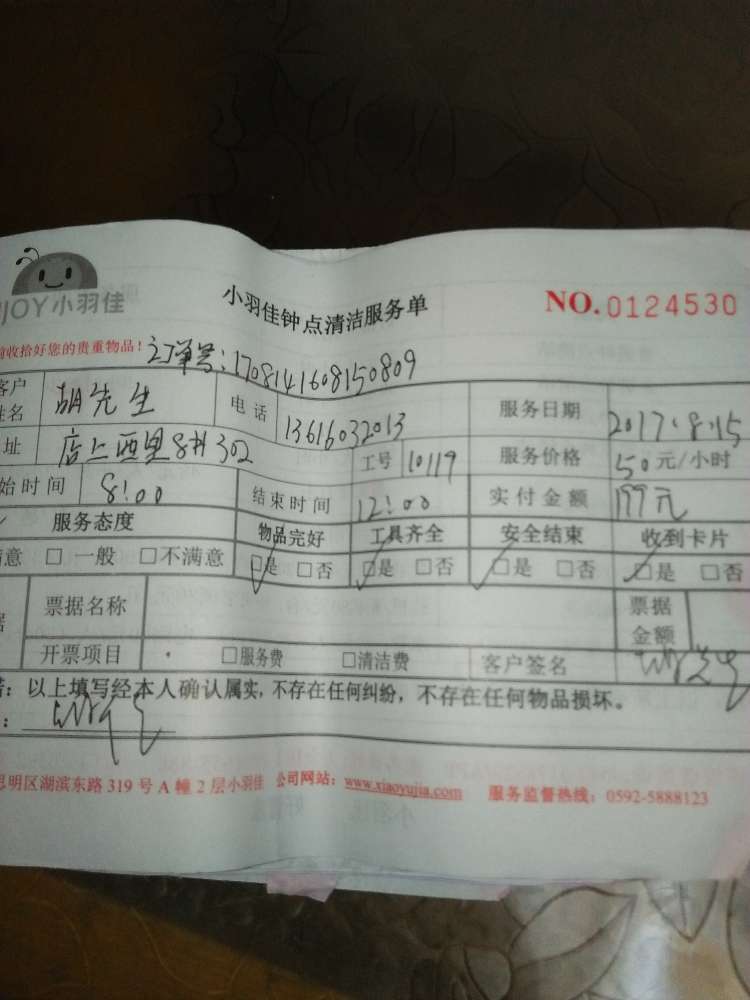 JOY小羽佳
小羽佳钟点清洁服务单
NO.0124530
前收拾好您的贵重物品！订单号：1708141608150809
客户姓名 胡先生 电话 13616032013 服务日期 2017.8.15
址 店上西里8# 302 工号 10119 服务价格 50元/小时
始时间 8:00 结束时间 12:00 实付金额 199元
服务态度 物品完好 工具齐全 安全结束 收到卡片
满意 □一般 □不满意 □是 □否 □是 □否 □是 □否 □是 □否
据 票据名称 票据金额
开票项目 □服务费 □清洁费 客户签名
：以上填写经本人确认属实，不存在任何纠纷，不存在任何物品损坏。
思明区湖滨东路 319 号 A 幢 2 层小羽佳 公司网站：www.xiaoyujia.com 服务监督热线：0592-5888123